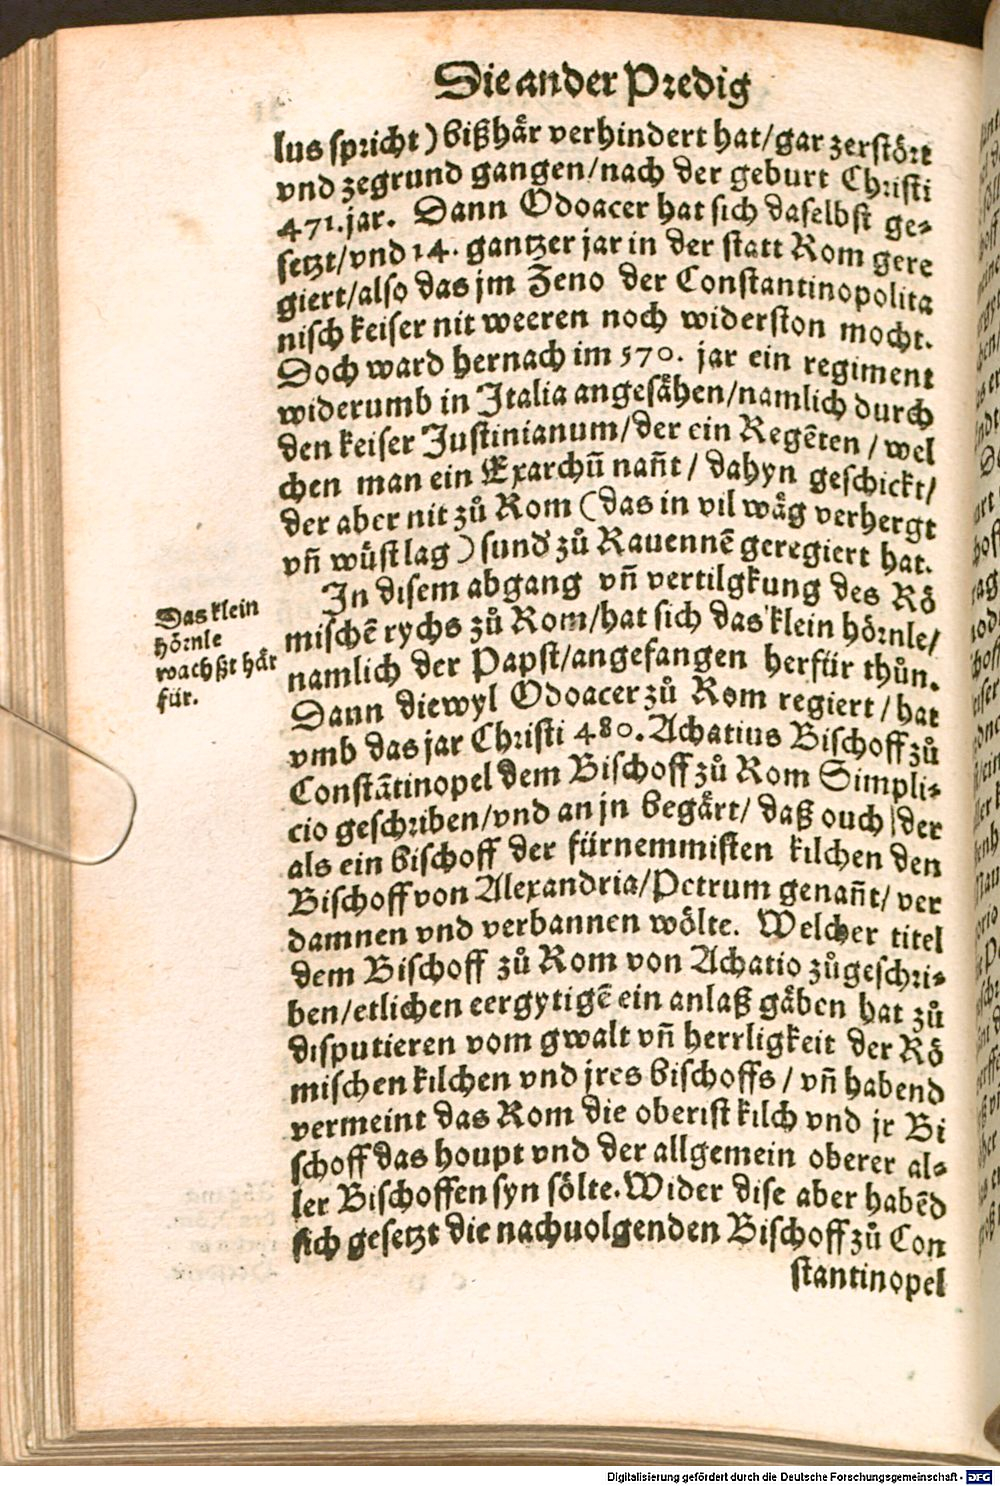 Die ander Predig
lus spricht) bißhär verhindert hat/gar zerstört
vnd zegrund gangen/nach der geburt Christi
471.jar. Dann Odoacer hat sich daselbst ge-
setzt/vnd 14. gantzer jar in der statt Rom gere
giert/also das jm Zeno der Constantinopolita
nisch keiser nit weeren noch widerston mocht.
Doch ward hernach im 570. jar ein regiment
widerumb in Italia angesähen/namlich durch
den keiser Justinianum/der ein Regẽten/wel
chen man ein Exarchũ nañt/dahyn geschickt/
der aber nit zů Rom (das in vil wäg verhergt
vñ wüst lag) sund' zů Rauennẽ geregiert hat.
In disem abgang vñ vertilgkung des Rö
mischẽ rychs zů Rom/hat sich das klein hörnle/
namlich der Papst/angefangen herfür thůn.
Dann diewyl Odoacer zů Rom regiert/hat
vmb das jar Christi 480. Achatius Bischoff zů
Constãtinopel dem Bischoff zů Rom Simpli-
cio geschriben/vnd an jn begärt/daß ouch der
als ein bischoff der fürnemmisten kilchen den
Bischoff von Alexandria/Petrum genañt/ver
damnen vnd verbannen wölte. Welcher titel
dem Bischoff zů Rom von Achatio zůgeschri-
ben/etlichen eergytigẽ ein anlaß gäben hat zů
disputieren vom gwalt vñ herrligkeit der Rö
mischen kilchen vnd jres bischoffs/vñ habend
vermeint das Rom die oberist kilch vnd jr Bi
schoff das houpt vnd der allgemein oberer al-
ler Bischoffen syn sölte. Wider dise aber habẽd
sich gesetzt die nachuolgenden Bischoff zů Con
stantinopel
Das klein
hörnle
wachßt här
für.
Digitalisierung gefördert durch die Deutsche Forschungsgemeinschaft - DFG